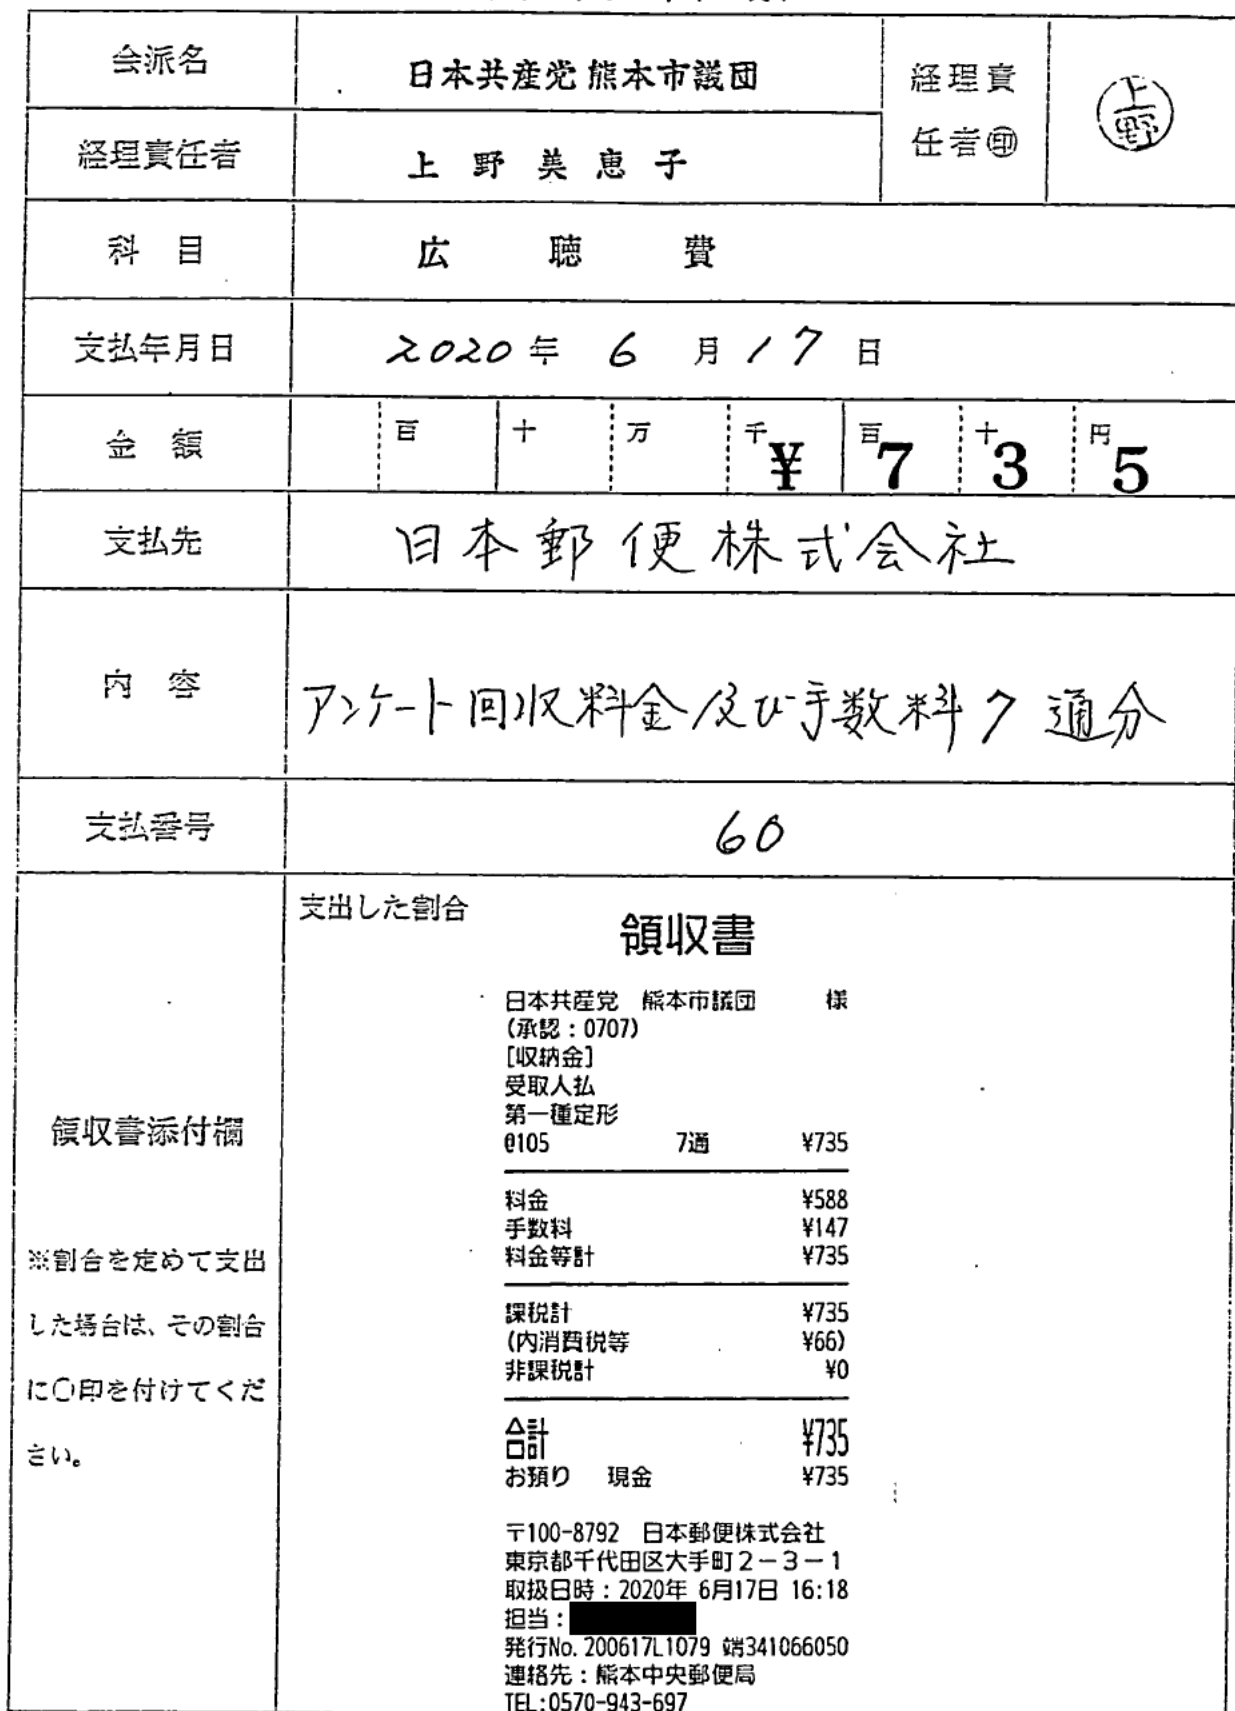 会派名 日本共産党 熊本市議団 経理責任者㊞ 上野
経理責任者 上野美恵子
科目 広聴費
支払年月日 2020年 6月17日
金額 百 十 万 千 ¥ 百 7 十 3 円 5
支払先 日本郵便株式会社
内容 アンケート回収料金及び手数料7通分
支払番号 60
領収書添付欄
※割合を定めて支出
した場合は、その割合
に〇印を付けてくだ
さい。
支出した割合
領収書
日本共産党 熊本市議団 様
(承認:0707)
[収納金]
受取人払
第一種定形
@105 7通 ¥735
料金 ¥588
手数料 ¥147
料金等計 ¥735
課税計 ¥735
(内消費税等 ¥66)
非課税計 ¥0
合計 ¥735
お預り 現金 ¥735
〒100-8792 日本郵便株式会社
東京都千代田区大手町2-3-1
取扱日時:2020年 6月17日 16:18
担当:
発行No.200617L1079 端341066050
連絡先:熊本中央郵便局
TEL:0570-943-697